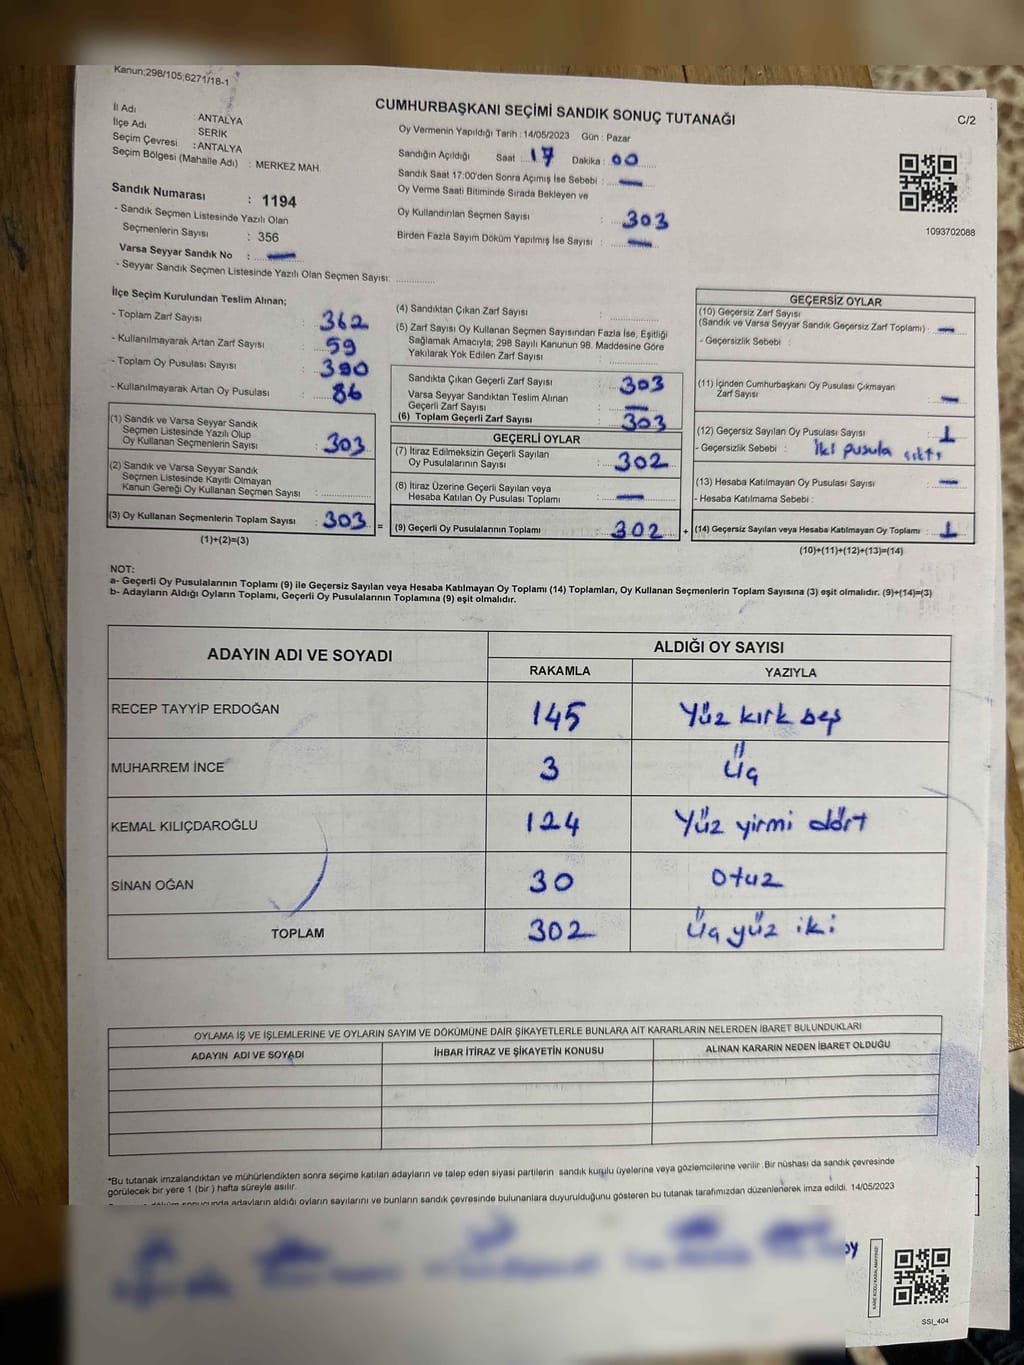 Kanun;298/105;6271/18-1
CUMHURBAŞKANI SEÇİMİ SANDIK SONUÇ TUTANAĞI
C/2
İl Adı : ANTALYA
İlçe Adı : SERİK
Seçim Çevresi : ANTALYA
Seçim Bölgesi (Mahalle Adı) : MERKEZ MAH.
Sandık Numarası : 1194
- Sandık Seçmen Listesinde Yazılı Olan
Seçmenlerin Sayısı : 356
Varsa Seyyar Sandık No : —
- Seyyar Sandık Seçmen Listesinde Yazılı Olan Seçmen Sayısı: ..............
Oy Vermenin Yapıldığı Tarih : 14/05/2023 Gün : Pazar
Sandığın Açıldığı Saat : 17 Dakika : 00
Sandık Saat 17:00'den Sonra Açımış İse Sebebi : —
Oy Verme Saati Bitiminde Sırada Bekleyen ve
Oy Kullandırılan Seçmen Sayısı : 303
Birden Fazla Sayım Döküm Yapılmış İse Sayısı : —
1093702088
İlçe Seçim Kurulundan Teslim Alınan;
- Toplam Zarf Sayısı : 362
- Kullanılmayarak Artan Zarf Sayısı : 59
- Toplam Oy Pusulası Sayısı : 390
- Kullanılmayarak Artan Oy Pusulası : 86
(1) Sandık ve Varsa Seyyar Sandık
Seçmen Listesinde Yazılı Olup
Oy Kullanan Seçmenlerin Sayısı : 303
(2) Sandık ve Varsa Seyyar Sandık
Seçmen Listesinde Kayıtlı Olmayan
Kanun Gereği Oy Kullanan Seçmen Sayısı : ..............
(3) Oy Kullanan Seçmenlerin Toplam Sayısı : 303 =
(1)+(2)=(3)
(4) Sandıktan Çıkan Zarf Sayısı : ..............
(5) Zarf Sayısı Oy Kullanan Seçmen Sayısından Fazla İse, Eşitliği
Sağlamak Amacıyla; 298 Sayılı Kanunun 98. Maddesine Göre
Yakılarak Yok Edilen Zarf Sayısı : ..............
Sandıkta Çıkan Geçerli Zarf Sayısı : 303
Varsa Seyyar Sandıktan Teslim Alınan
Geçerli Zarf Sayısı : —
(6) Toplam Geçerli Zarf Sayısı : 303
GEÇERLİ OYLAR
(7) İtiraz Edilmeksizin Geçerli Sayılan
Oy Pusulalarının Sayısı : 302
(8) İtiraz Üzerine Geçerli Sayılan veya
Hesaba Katılan Oy Pusulası Toplamı : —
(9) Geçerli Oy Pusulalarının Toplamı : 302 +
GEÇERSİZ OYLAR
(10) Geçersiz Zarf Sayısı
(Sandık ve Varsa Seyyar Sandık Geçersiz Zarf Toplamı) : —
- Geçersizlik Sebebi :
(11) İçinden Cumhurbaşkanı Oy Pusulası Çıkmayan
Zarf Sayısı : —
(12) Geçersiz Sayılan Oy Pusulası Sayısı : 1
- Geçersizlik Sebebi : İki pusula çıktı
(13) Hesaba Katılmayan Oy Pusulası Sayısı : —
- Hesaba Katılmama Sebebi :
(14) Geçersiz Sayılan veya Hesaba Katılmayan Oy Toplamı : 1
(10)+(11)+(12)+(13)=(14)
NOT:
a- Geçerli Oy Pusulalarının Toplamı (9) ile Geçersiz Sayılan veya Hesaba Katılmayan Oy Toplamı (14) Toplamları, Oy Kullanan Seçmenlerin Toplam Sayısına (3) eşit olmalıdır. (9)+(14)=(3)
b- Adayların Aldığı Oyların Toplamı, Geçerli Oy Pusulalarının Toplamına (9) eşit olmalıdır.
ADAYIN ADI VE SOYADI
ALDIĞI OY SAYISI
RAKAMLA YAZIYLA
RECEP TAYYİP ERDOĞAN 145 Yüz kırk beş
MUHARREM İNCE 3 Üç
KEMAL KILIÇDAROĞLU 124 Yüz yirmi dört
SİNAN OĞAN 30 Otuz
TOPLAM 302 Üç yüz iki
OYLAMA İŞ VE İŞLEMLERİNE VE OYLARIN SAYIM VE DÖKÜMÜNE DAİR ŞİKAYETLERLE BUNLARA AİT KARARLARIN NELERDEN İBARET BULUNDUKLARI
ADAYIN ADI VE SOYADI İHBAR İTİRAZ VE ŞİKAYETİN KONUSU ALINAN KARARIN NEDEN İBARET OLDUĞU
*Bu tutanak imzalandıktan ve mühürlendikten sonra seçime katılan adayların ve talep eden siyasi partilerin sandık kurulu üyelerine veya gözlemcilerine verilir .Bir nüshası da sandık çevresinde
görülecek bir yere 1 (bir ) hafta süreyle asılır.
sonucunda adayların aldığı oyların sayılarını ve bunların sandık çevresinde bulunanlara duyurulduğunu gösteren bu tutanak tarafımızdan düzenlenerek imza edildi. 14/05/2023
SSI_404